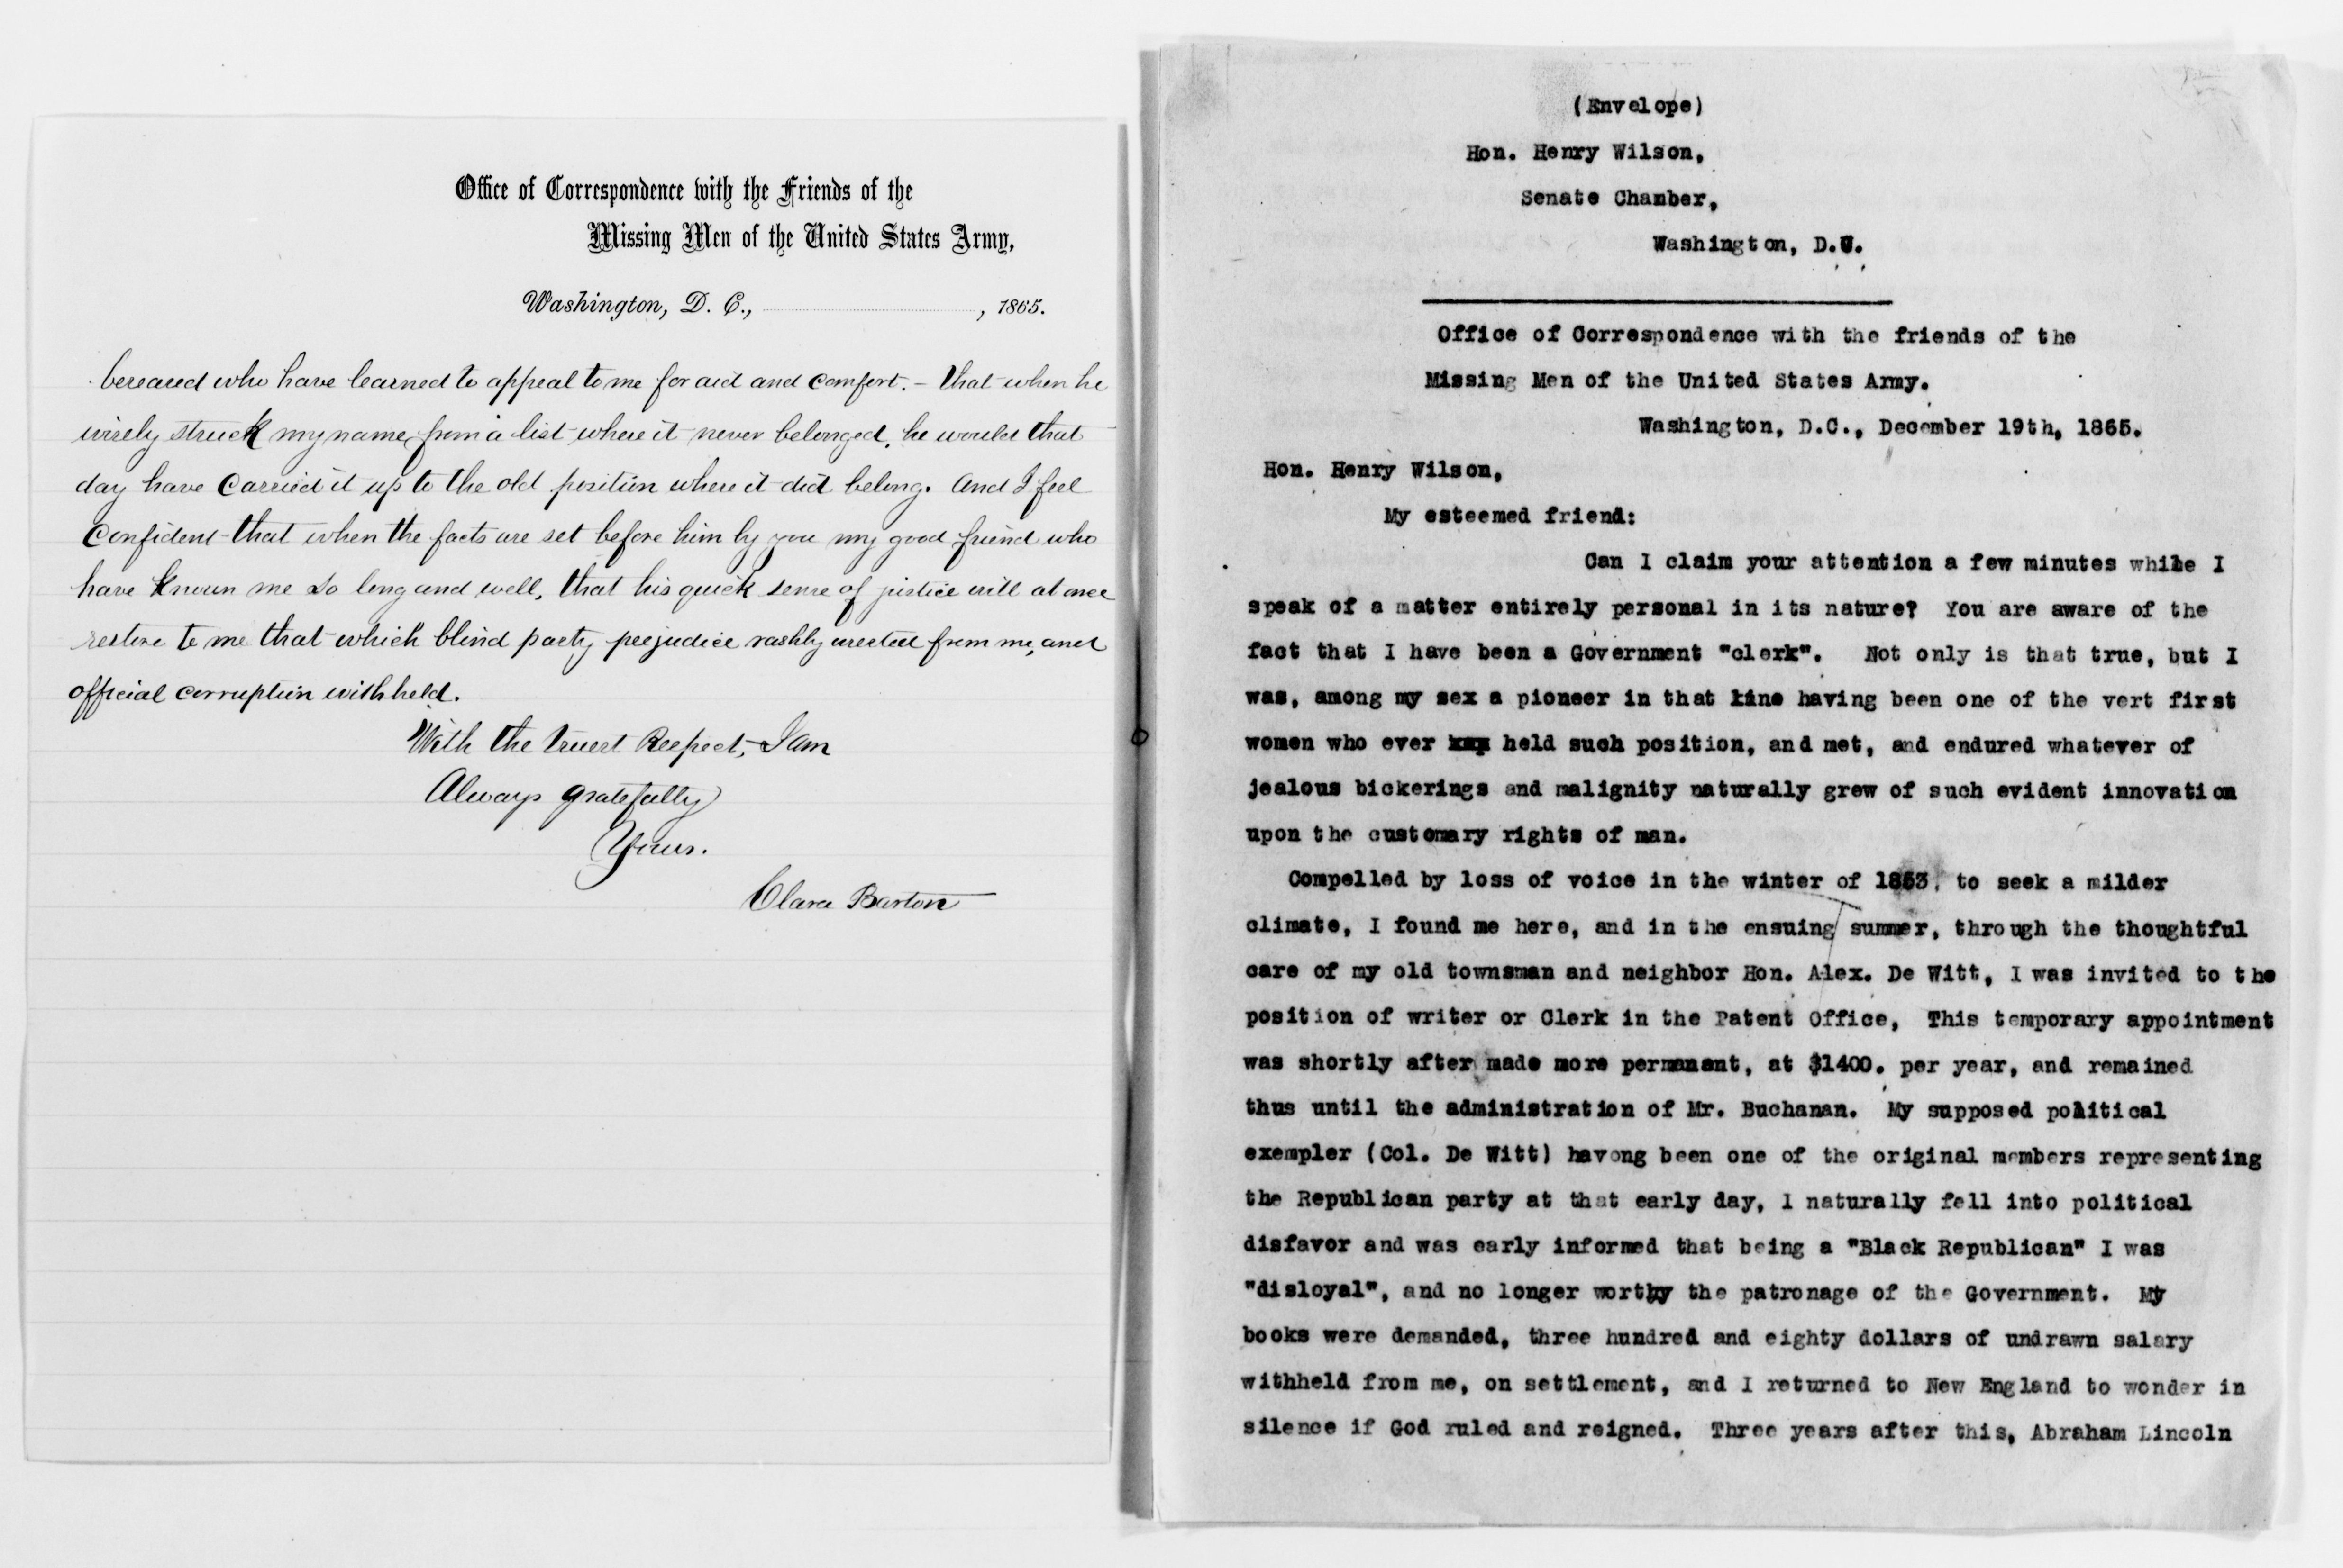 Office of Correspondence with the Friends of the
Missing Men of the United States Army,
Washington, D. C., , 1865.
bereaved who have learned to appeal to me for aid and comfort. – that when he
wisely struck my name from a list where it never belonged, he would that
day have carried it up to the old position where it did belong. And I feel
confident that when the facts are set before him by you my good friend who
have known me so long and well, that his quick sense of justice will at once
restore to me that which blind party prejudice rashly wrested from me, and
official corruption withheld.
With the truest Respect, I am
Always gratefully
Yours.
Clara Barton
(Envelope)
Hon. Henry Wilson,
Senate Chamber,
Washington, D.C.
Office of Correspondence with the friends of the
Missing Men of the United States Army.
Washington, D.C., December 19th, 1865.
Hon. Henry Wilson,
My esteemed friend:
Can I claim your attention a few minutes while I
speak of a matter entirely personal in its nature? You are aware of the
fact that I have been a Government "clerk". Not only is that true, but I
was, among my sex a pioneer in that line having been one of the vert first
women who ever held such position, and met, and endured whatever of
jealous bickerings and malignity naturally grew of such evident innovation
upon the customary rights of man.
Compelled by loss of voice in the winter of 1853, to seek a milder
climate, I found me here, and in the ensuing summer, through the thoughtful
care of my old townsman and neighbor Hon. Alex. De Witt, I was invited to the
position of writer or Clerk in the Patent Office, This temporary appointment
was shortly after made more permanent, at $1400. per year, and remained
thus until the administration of Mr. Buchanan. My supposed political
exempler (Col. De Witt) havong been one of the original members representing
the Republican party at that early day, I naturally fell into political
disfavor and was early informed that being a "Black Republican" I was
"disloyal", and no longer worthy the patronage of the Government. My
books were demanded, three hundred and eighty dollars of undrawn salary
withheld from me, on settlement, and I returned to New England to wonder in
silence if God ruled and reigned. Three years after this, Abraham Lincoln